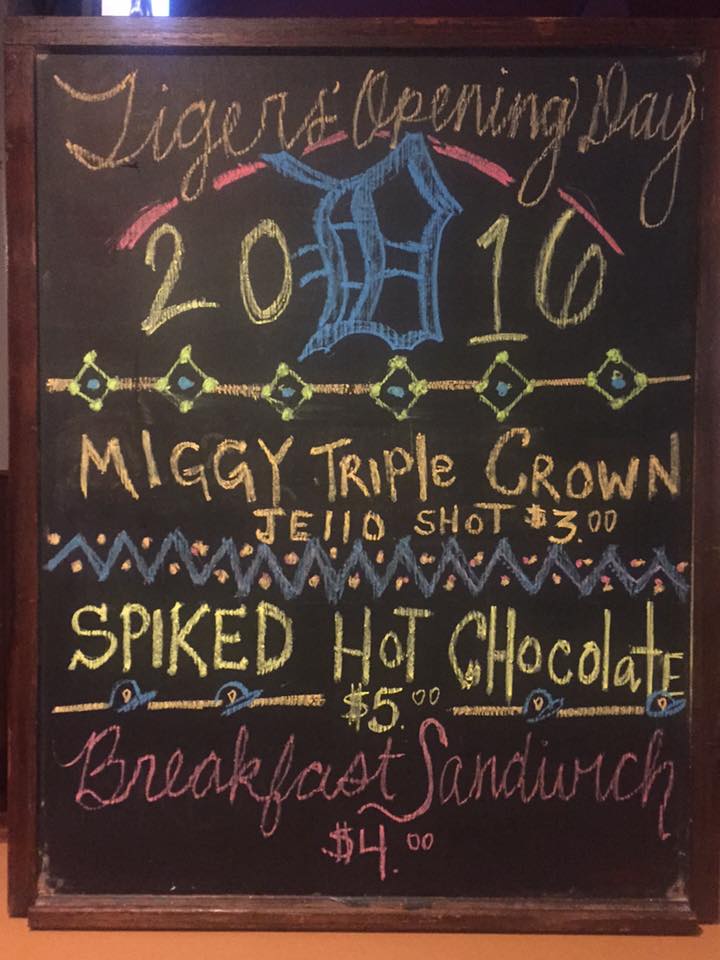 Tigers' Opening Day
20 D 16
MIGGY TRIPle CROWN
JEllO SHOT $3.00
SPIKED HOT CHOcolatE
$5.00
Breakfast Sandwich
$4.00